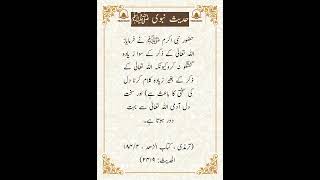 حدیث نبوی ﷺ
حضور نبی اکرم ﷺ نے فرمایا:
اللہ تعالٰی کے ذکر کے سوا زیادہ
گفتگو نہ کرو کیونکہ اللہ تعالٰی کے
ذکر کے بغیر زیادہ کلام کرنا دل
کی سختی کا باعث ہے) اور سخت
دل آدمی اللہ تعالٰی سے بہت
دور ہوتا ہے۔
(ترمذی، کتاب الزھد، ۴/۱۸۴
الحدیث: ۲۴۱۹)